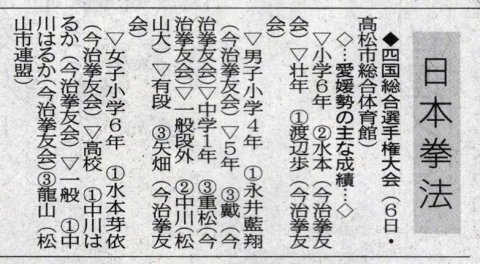 日本拳法
◆四国総合選手権大会（6日・
高松市総合体育館）
◇…愛媛勢の主な成績…◇
▽小学6年　②水本（今治拳友
会）▽壮年　①渡辺歩（今治拳友
会）
▽男子小学4年　①永井藍翔
（今治拳友会）▽5年　③戴（今
治拳友会）▽中学1年　③重松（今
治拳友会）▽一般段外　②中川（松
山大）▽有段　③矢畑（今治拳友
会）
▽女子小学6年　①水本芽依
（今治拳友会）▽高校　①中川は
るか（今治拳友会）▽一般　①中
川はるか（今治拳友会）③龍山（松
山市連盟）